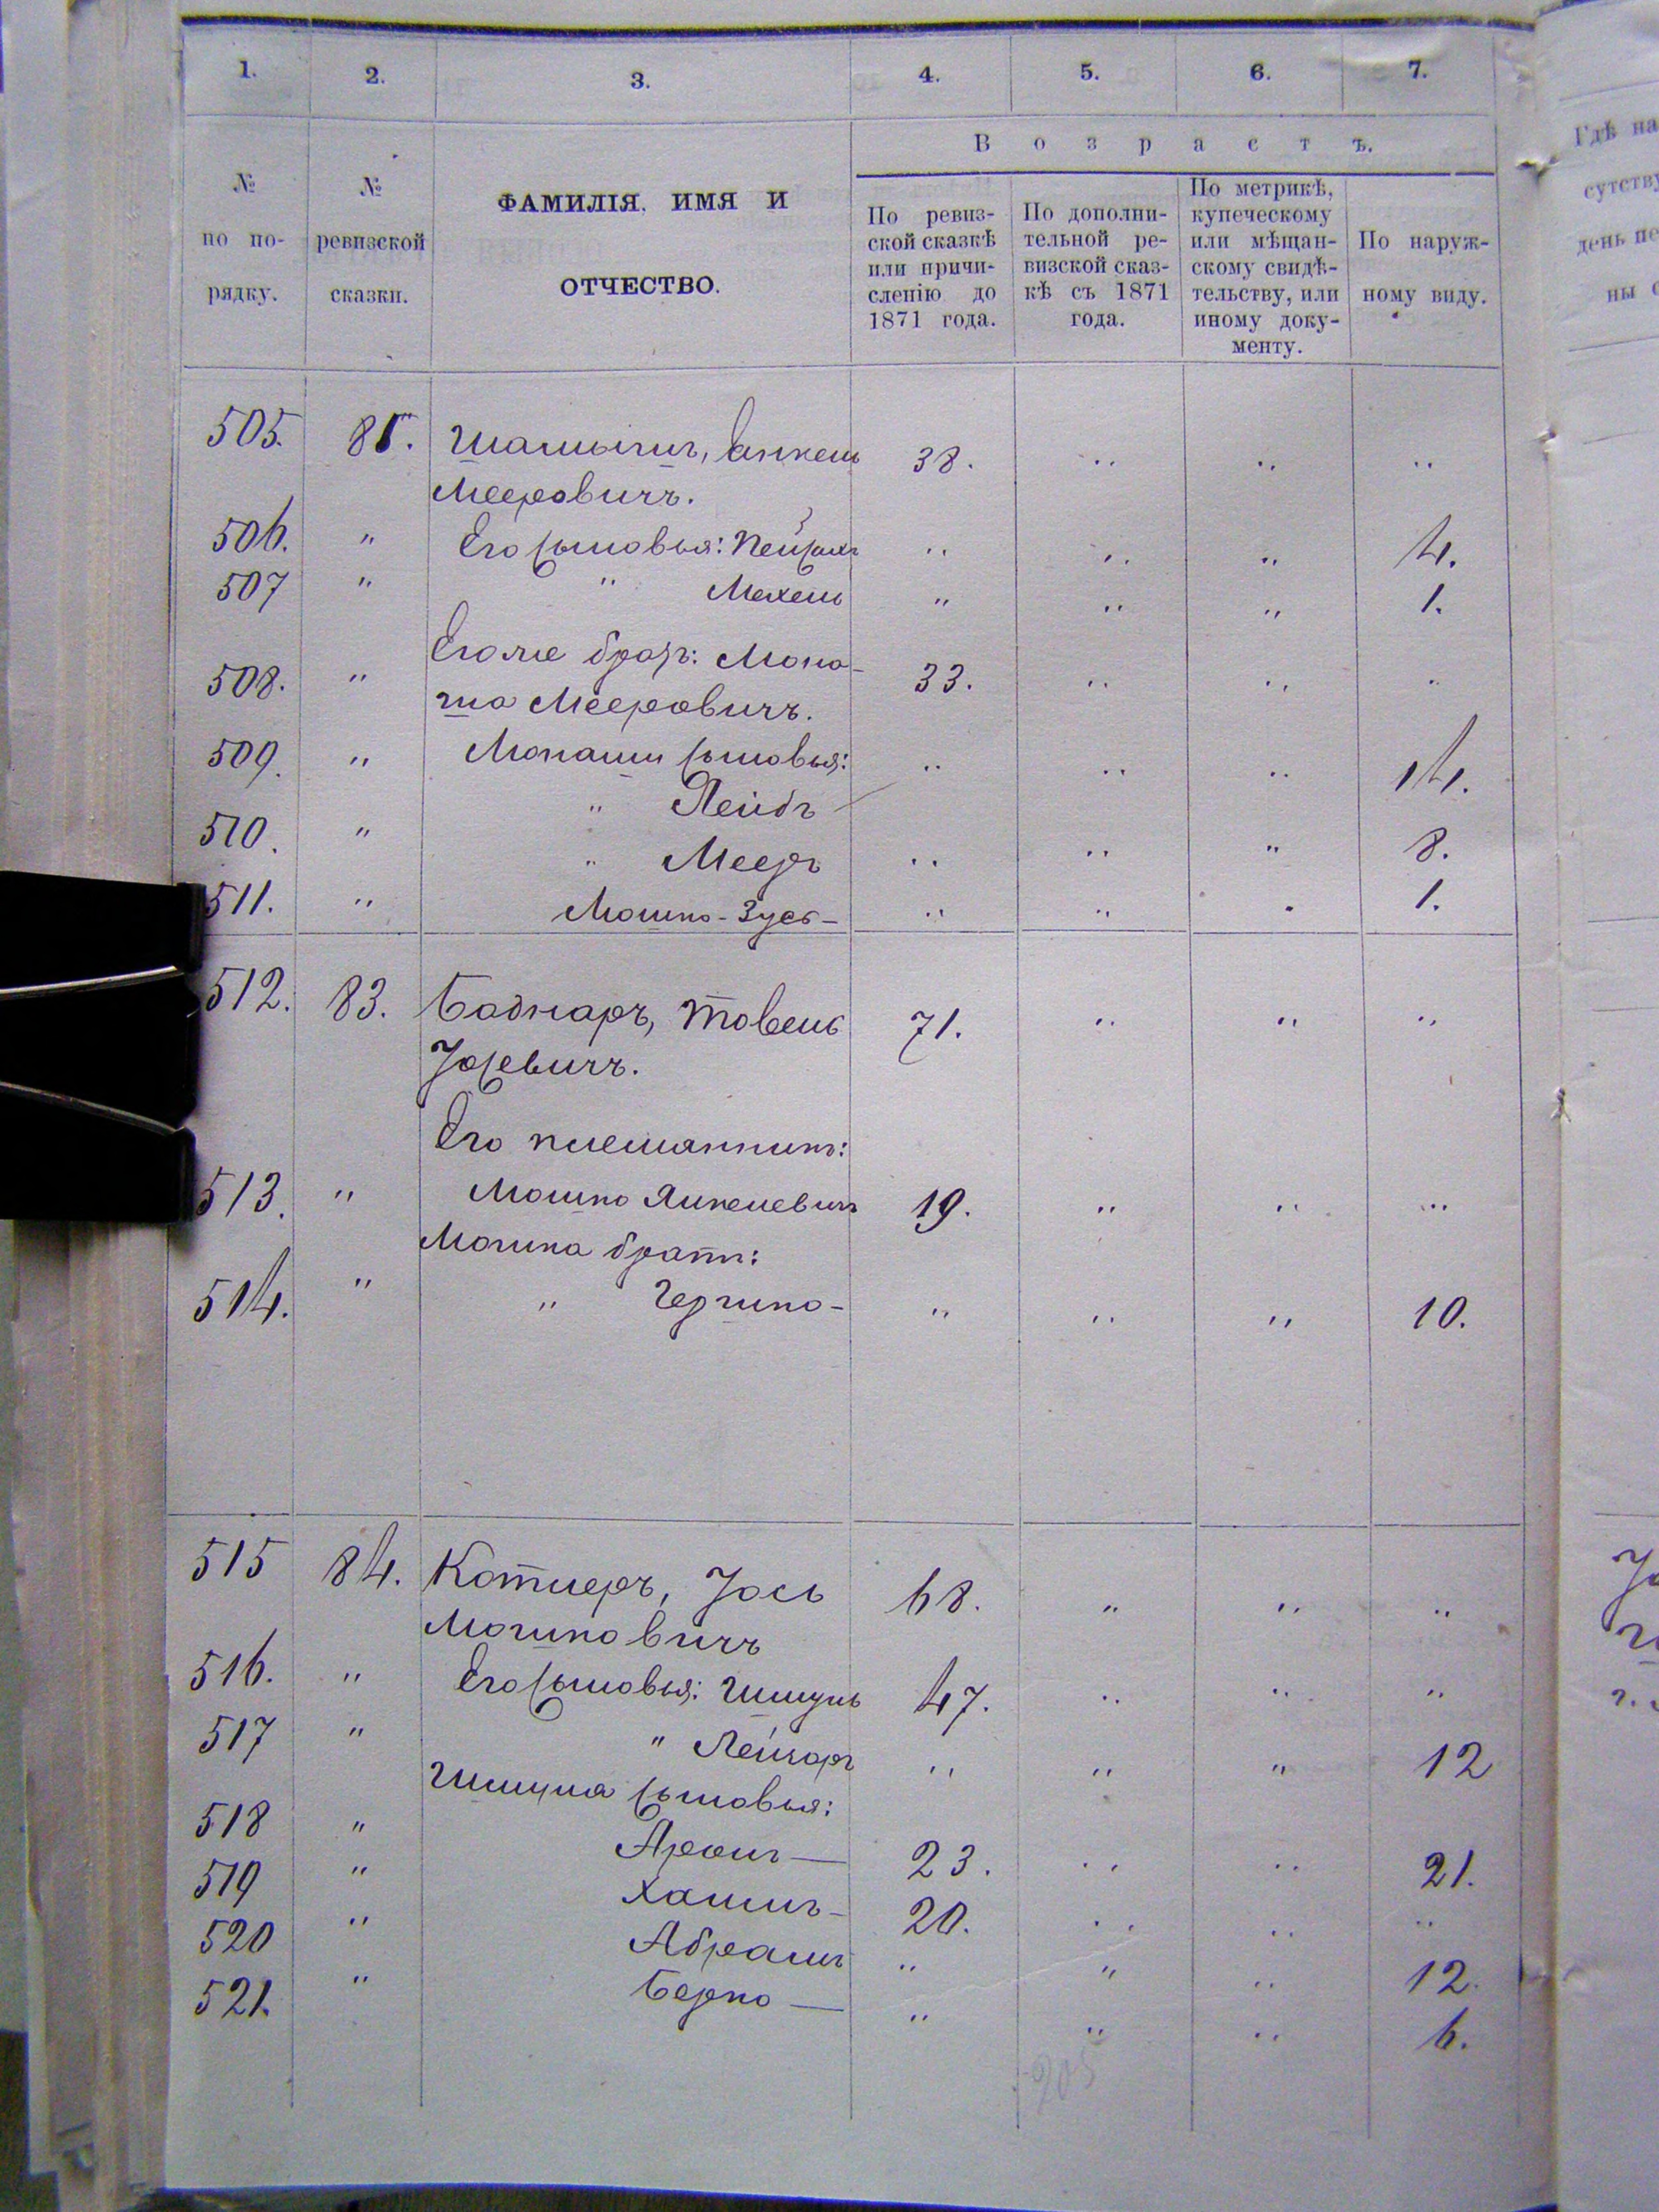 1. 2. 3. 4. 5. 6. 7.
В о з р а с т ъ.
№ по порядку.
№ ревизской сказки.
ФАМИЛІЯ, ИМЯ И
ОТЧЕСТВО.
По ревиз-
ской сказкѣ
или причи-
сленію до
1871 года.
По дополни-
тельной ре-
визской сказ-
кѣ съ 1871
года.
По метрикѣ,
купеческому
или мѣщан-
скому свидѣ-
тельству, или
иному доку-
менту.
По наруж-
ному виду.
505. 38.
Мееровичъ.
506. " Его сыновья: Пейсахъ " " " 4.
507 " " Мехель " " " 1.
Его же братъ: Мона-
508. " 33. " " "
ша Мееровичъ.
509. " Монаши сыновья: " " " 14.
" Лейбъ
510. " " Мееръ " " " 8.
511. " Мошко-Зусь- " " " 1.
512. 83. Боднаръ, Товель 71. " " "
Іосевичъ.
Его племянникъ:
513. " Мошко Янкелевичъ 19. " " "
Мошка братъ:
514. " " Гершко- " " " 10.
515 84. Котлеръ, Іось 68. " " "
Мошковичъ
516. " Его сыновья: Шмуль 47. " " "
517 " " Лейзоръ " " " 12
Шмуля сыновья:
518 " Аронъ — 23. " " 21.
519 " Хаимъ - 20. " " "
520 " Абрамъ " " " 12.
521. " Берко — " " " 6.
205
Гдѣ на
сутству
день пе
ны